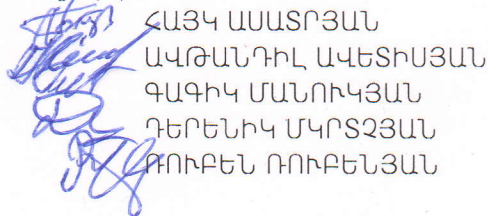 ՀԱՅԿ ԱՍԱՏՐՅԱՆ
ԱՎԹԱՆԴԻԼ ԱՎԵՏԻՍՅԱՆ
ԳԱԳԻԿ ՄԱՆՈՒԿՅԱՆ
ԴԵՐԵՆԻԿ ՄԿՐՏՉՅԱՆ
ՌՈՒԲԵՆ ՌՈՒԲԵՆՅԱՆ